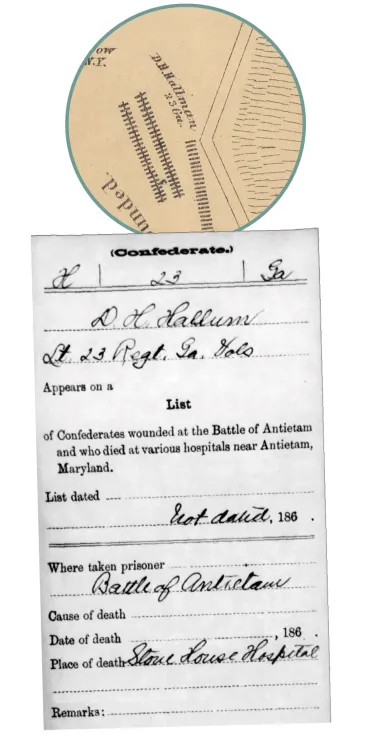 ow
N.Y.
D.H. Hallman
23 Ga.
unded.
(Confederate.)
H | 23 | Ga
D. H. Hallum
Lt. 23 Regt. Ga. Vols
Appears on a
List
of Confederates wounded at the Battle of Antietam
and who died at various hospitals near Antietam,
Maryland.
List dated
Not dated, 186 .
Where taken prisoner
Battle of Antietam
Cause of death
Date of death , 186 .
Place of death Stone House Hospital
Remarks: